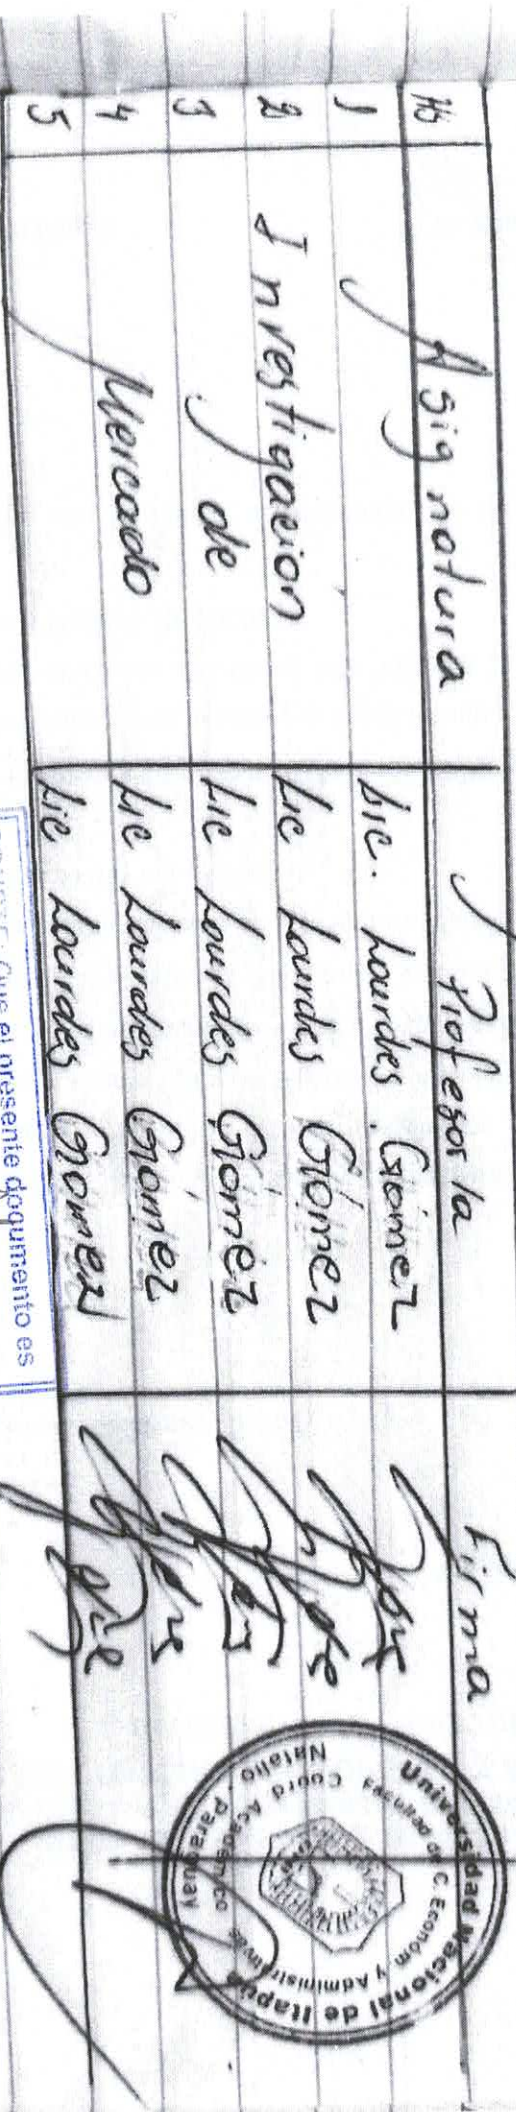 Hs Asignatura Profesor/a Firma
1 Lic. Lourdes Gómez
2 Investigacion Lic Lourdes Gómez
3 de Lic Lourdes Gómez
4 Mercado Lic Lourdes Gómez
5 Lic Lourdes Gomez
Universidad Nacional de Itapúa
Facultad de C. Económ y Administrativas
Coord Academico
Natalio - Paraguay
Que el presente documento es